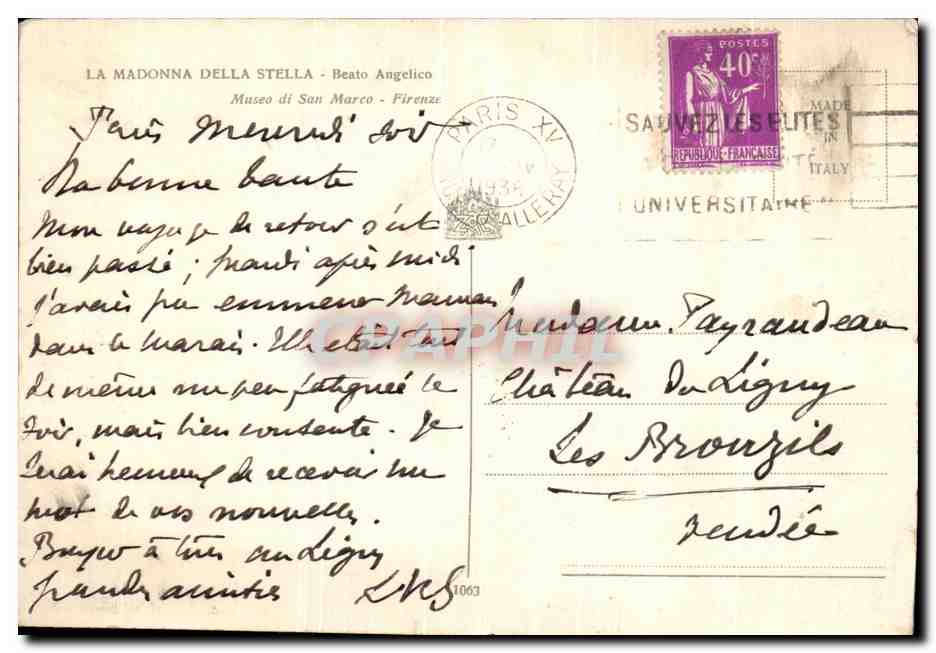 LA MADONNA DELLA STELLA - Beato Angelico
Museo di San Marco - Firenze
Paris Mercredi soir
Ma bonne tante
Mon voyage de retour s'est
bien passé ; mardi après midi
j'avais pu emmener Maman
dans le Marais. Elle était tout
de même un peu fatiguée le
soir, mais bien contente. Je
serai heureux de recevoir un
mot de vos nouvelles.
à tous au Ligny
grandes amitiés
1063
PARIS XV
ALLERAY
POSTES
40c
REPUBLIQUE-FRANÇAISE
SAUVEZ LES ELITES
UNIVERSITAIRE
MADE
IN
ITALY
Madame Payraudeau
Château du Ligny
Les Brouzils
Vendée
CPAPHIL